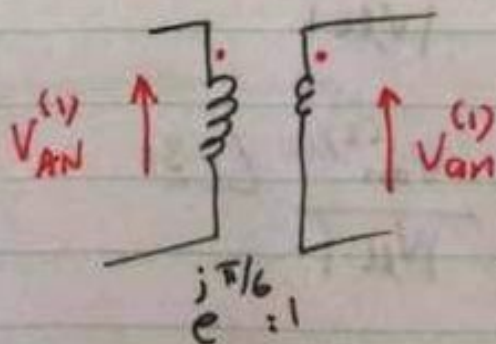 V_AN^(1)
V_an^(1)
e^jπ/6 : 1